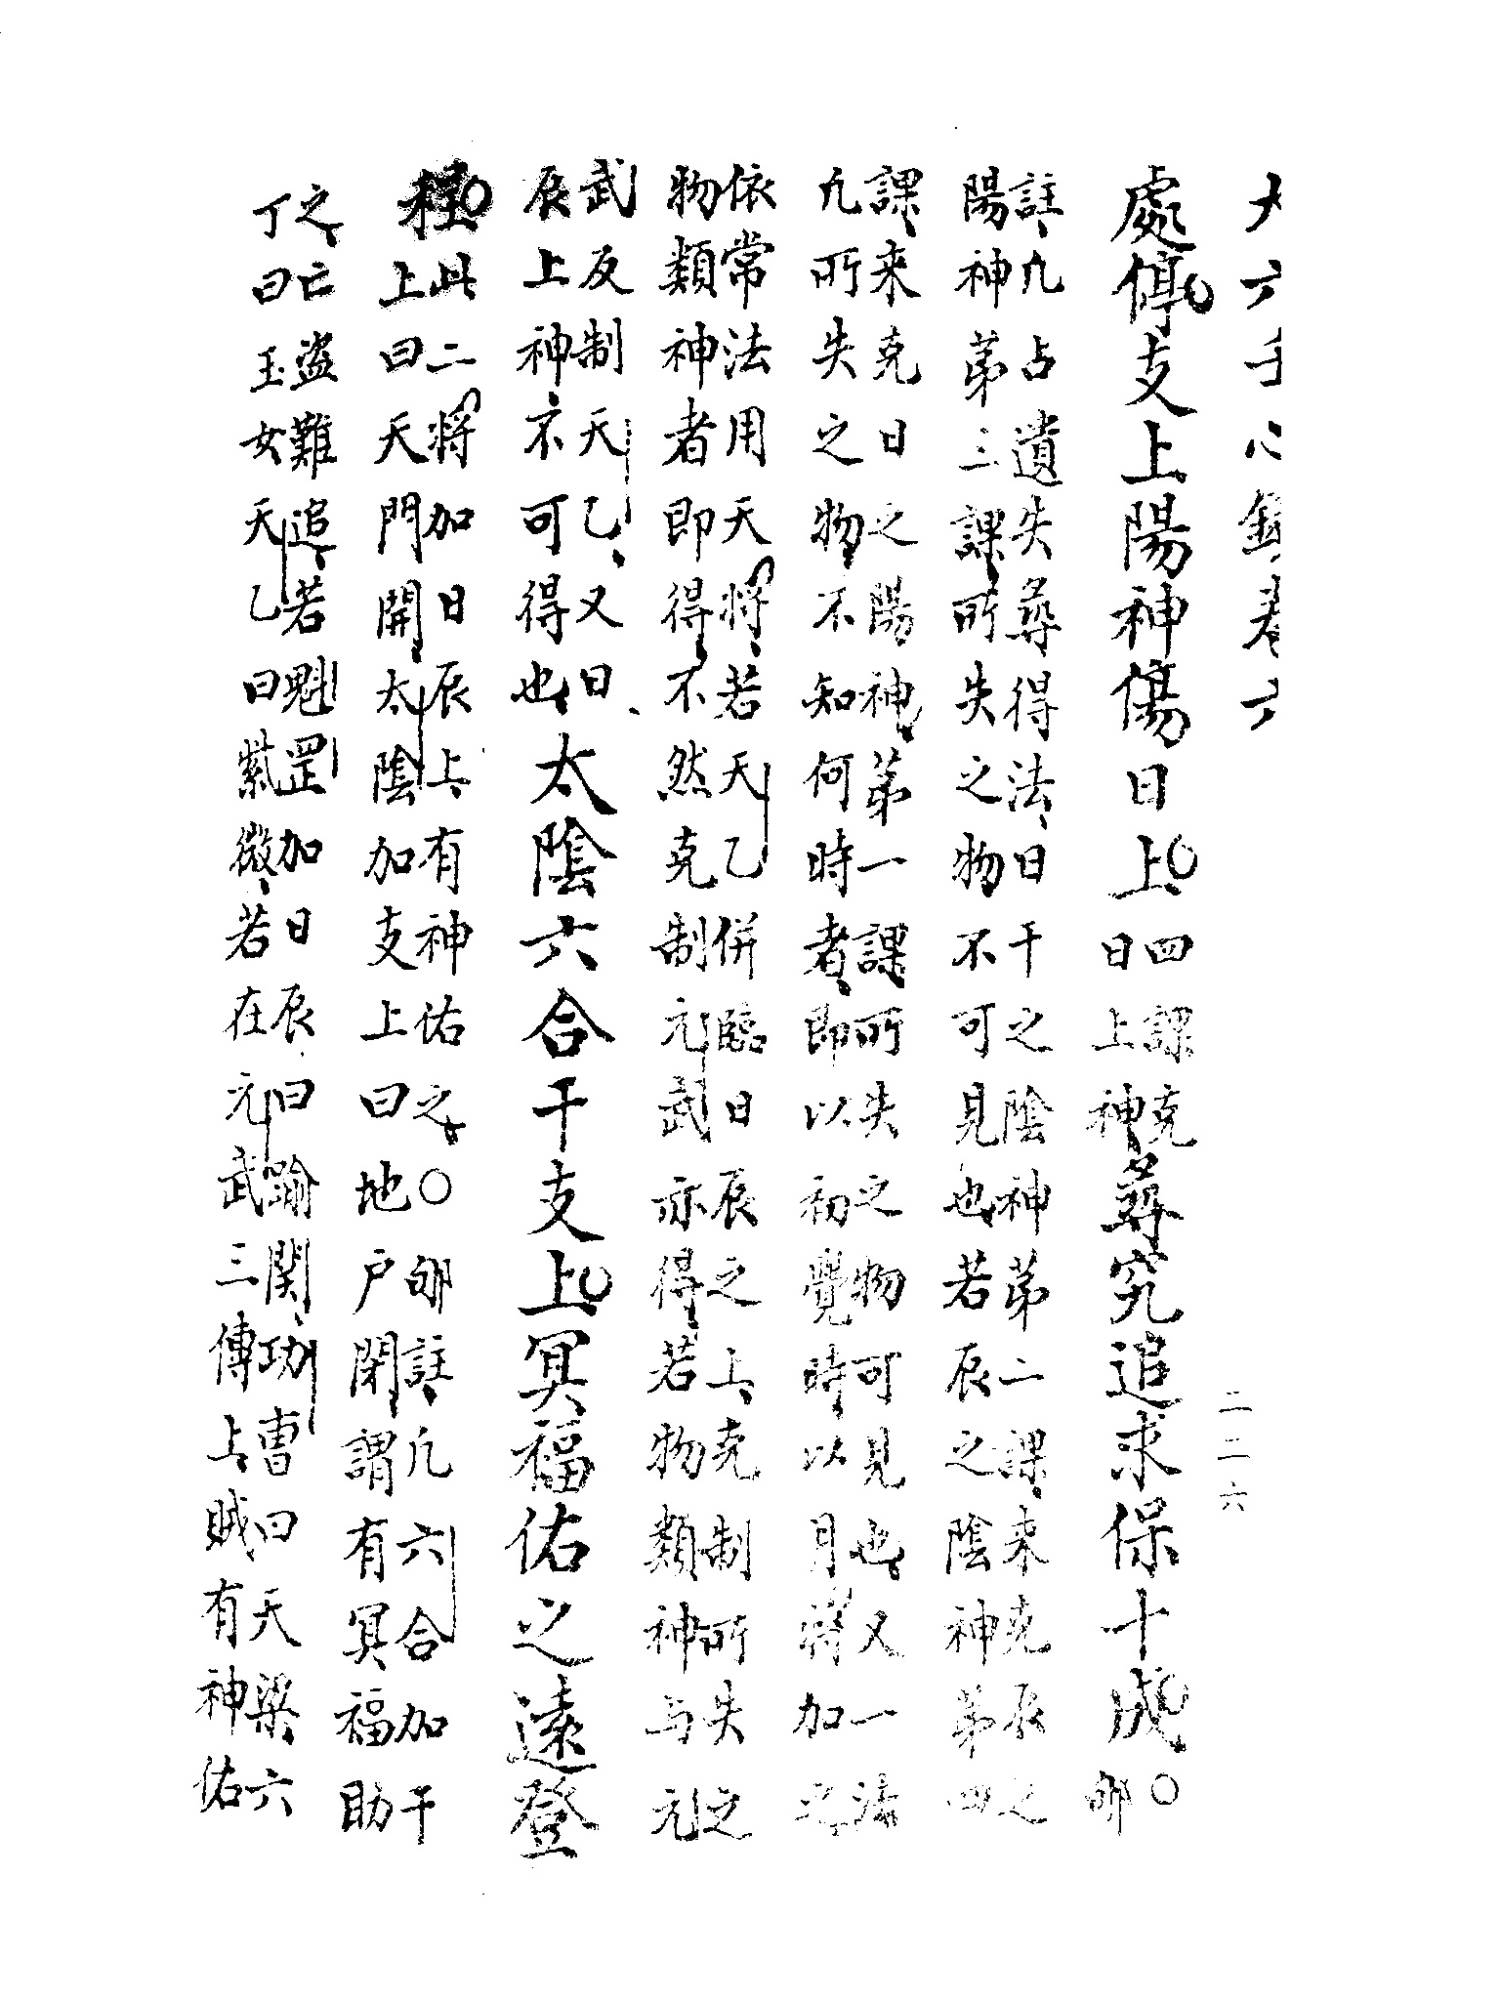 大六壬心鏡卷六
二二六
處停支上陽神傷日上四課克日上神尋究追求保十成○邵
註凡占遺失尋得法日干之陰神第二課來克辰之
陽神第三課所失之物不可見也若辰之陰神第四
課來克日之陽神第一課所失之物可見也又一法
凡所失之物不知何時者即以初覺時以月將加之
依常法用天將若天乙併臨日辰之上克制所失之
物類神者即得不然克制元武亦得若物類神与元
武反制天乙又日
辰上神不可得也太陰六合干支上冥福佑之遠登
程此二將加日辰上有神佑之○邵註凡六合加干
上曰天門開太陰加支上曰地户閉謂有冥福助
之亡盜難追若魁罡加日辰曰踰関功曹曰天梁六
丁曰玉女天乙曰紫微若在元武三傳上賊有神佑